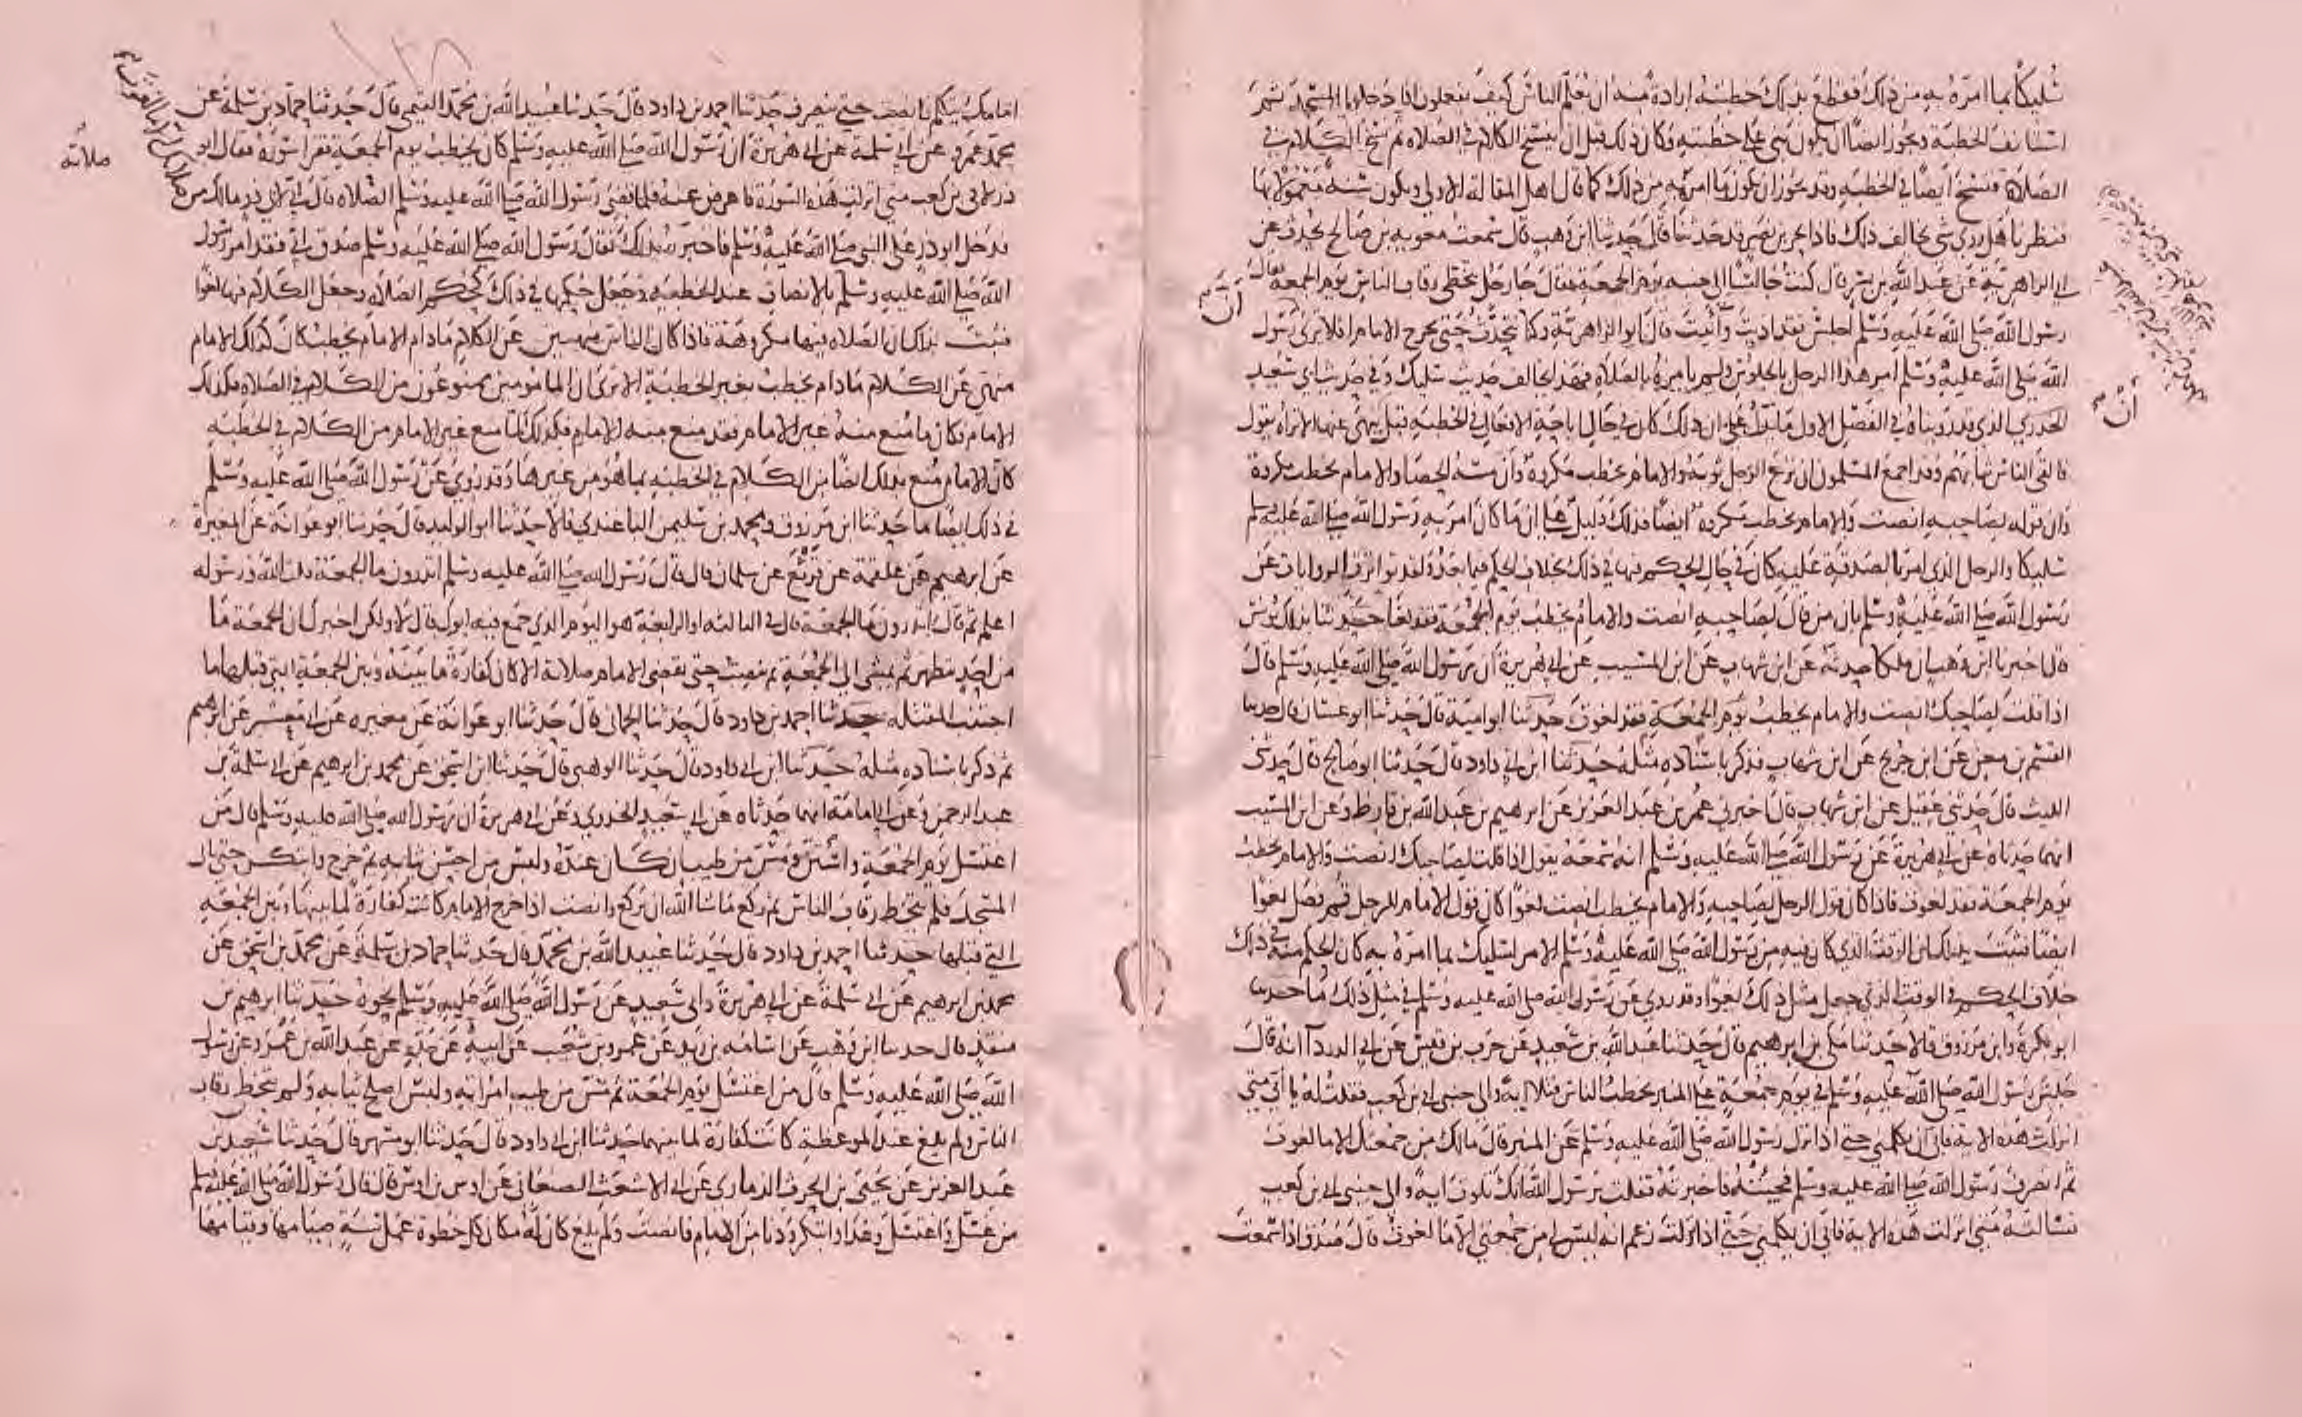 سليكا بما امره به من ذلك فقطع بذلك خطبته ارادة منه ان يعلم الناس كيف يفعلون اذا دخلوا المسجد ثم
استانف الخطبة ويجوز ايضا ان يكون بنى على خطبته وكان ذلك قبل ان ينسخ الكلام في الصلاة ثم نسخ الكلام في
الصلاة فنسخ ايضا في الخطبة وقد يجوز ان يكون ما امره به من ذلك كما قال اهل المقالة الاولى ويكون سنة معمولا بها
فنظرنا هل روي شي يخالف ذلك فاذا بحر بن نصر قد حدثنا قال حدثنا ابن وهب قال سمعت معوية بن صالح يحدث عن
ابي الزاهرية عن عبد الله بن بسر قال كنت جالسا الى جنبه يوم الجمعة فقال جا رجل يتخطى رقاب الناس يوم الجمعة فقال
رسول الله صلى الله عليه وسلم اجلس فقد اذيت وآنيت قال ابو الزاهرية وكنا نتحدث حتى يخرج الامام افلا ترى رسول
الله صلى الله عليه وسلم امر هذا الرجل بالجلوس ولم يامره بالصلاة فهذا يخالف حديث سليك وفي حديث ابي سعيد
الخدري الذي قد رويناه في الفصل الاول ما يدل على ان ذلك كان في حال اباحة الافعال في الخطبة قبل ينهى عنها الا تراه يقول
فالقى الناس ثيابهم وقد اجمع المسلمون ان نزع الرجل ثوبه والامام يخطب مكروه وان مسه الحصا والامام يخطب مكروه
وان قوله لصاحبه انصت والامام يخطب مكروه ايضا فذلك دليل على ان ما كان امر به رسول الله صلى الله عليه وسلم
سليكا والرجل الذي امر بالصدقة عليه كان في حال الحكم فيها في ذلك بخلاف الحكم فيما بعد ولقد تواترت الروايات عن
رسول الله صلى الله عليه وسلم بان من قال لصاحبه انصت والامام يخطب يوم الجمعة فقد لغا حدثنا بذلك يونس
قال اخبرنا ابن وهب ان ملكا حدثه عن ابن شهاب عن ابن المسيب عن ابي هريرة ان رسول الله صلى الله عليه وسلم قال
اذا قلت لصاحبك انصت والامام يخطب يوم الجمعة فقد لغوت حدثنا ابو امية قال حدثنا ابو غسان قال حدثنا
القسم بن معن عن ابن جريج عن ابن شهاب فذكر باسناده مثله حدثنا ابن ابي داود قال حدثنا ابو صالح قال حدثني
الليث قال حدثني عقيل عن ابن شهاب قال اخبرني عمر بن عبد العزيز عن ابرهيم بن عبد الله بن قارظ وعن ابن المسيب
انهما حدثاه عن ابي هريرة عن رسول الله صلى الله عليه وسلم انه سمعه يقول اذا قلت لصاحبك انصت والامام يخطب
يوم الجمعة فقد لغوت فاذا كان قول الرجل لصاحبه والامام يخطب انصت لغوا كان قول الامام للرجل قم فصل لغوا
ايضا فثبت بذلك ان الوقت الذي كان فيه من رسول الله صلى الله عليه وسلم الامر لسليك بما امره به كان الحكم منه في ذلك
خلاف الحكم في الوقت الذي جعل مثل ذلك لغوا وقد روي عن رسول الله صلى الله عليه وسلم في مثل ذلك ما حدثنا
ابو بكرة وابن مرزوق قالا حدثنا مكي بن ابرهيم قال حدثنا عبد الله بن سعيد عن حرب بن قيس عن ابي الدردآ انه قال
جلس رسول الله صلى الله عليه وسلم في يوم جمعة على المنبر يخطب الناس فتلا اية والى جنبي ابي بن كعب فقلت له يا ابي متى
انزلت هذه الاية فابى ان يكلمني حتى اذا نزل رسول الله صلى الله عليه وسلم عن المنبر قال مالك من جمعتك الا ما لغوت
ثم انصرف رسول الله صلى الله عليه وسلم فجئته فاخبرته فقلت يرسول الله انك تلوت اية والى جنبي ابي بن كعب
فسالته متى انزلت هذه الاية فابى ان يكلمني حتى اذا نزلت زعم انه ليس لي من جمعتي الا ما لغوت قال صدق اذا سمعت
امامك يتكلم فانصت حتى ينصرف حدثنا احمد بن داود قال حدثنا عبيد الله بن محمد التيمي قال حدثنا حماد بن سلمة عن
محمد عمرو عن ابي سلمة عن ابي هريرة ان رسول الله صلى الله عليه وسلم كان يخطب يوم الجمعة فقرا سورة فقال ابو
ذر لابي بن كعب متى انزلت هذه السورة فاعرض عنه فلما قضى رسول الله صلى الله عليه وسلم الصلاة قال ابي لابي ذر مالك من
صلاتك الا ما لغوت
صلاته
فدخل ابو ذر على النبي صلى الله عليه وسلم فاخبره بذلك فقال رسول الله صلى الله عليه وسلم صدق ابي فقد امر رسول
الله صلى الله عليه وسلم بالانصات عند الخطبة وجعل حكمها في ذلك كحكم الصلاة وجعل الكلام فيها لغوا
فثبت بذلك ان الصلاة فيها مكروهة فاذا كان الناس منهيين عن الكلام مادام الامام يخطب كان كذلك الامام
منهي عن الكلام مادام يخطب بغير الخطبة الا ترى ان المامومين ممنوعون من الكلام في الصلاة فكذلك
الامام فكان ما منع منه غير الامام فقد منع منه الامام فكذلك لما منع غير الامام من الكلام في الخطبة
كان الامام منع بذلك ايضا من الكلام في الخطبة بما هو من غيرها وقد روي عن رسول الله صلى الله عليه وسلم
في ذلك ايضا ما حدثنا ابن مرزوق ومحمد بن سليمن الباغندي قالا حدثنا ابو الوليد قال حدثنا ابو عوانة عن المغيرة
عن ابرهيم عن علقمة عن قرثع عن سلمان قال قال رسول الله صلى الله عليه وسلم اتدرون ما الجمعة قلت الله ورسوله
اعلم ثم قال اتدرون ما الجمعة قال في الثالثه او الرابعة هو اليوم الذي جمع فيه ابوك قال لا ولكن اخبرك ان الجمعة ما
من احد يتطهر ثم يمشي الى الجمعة ثم ينصت حتى يقضي الامام صلاتة الا كان كفارة ما بينه وبين الجمعة التي قبلها ما
اجتنبت المقتلة حدثنا احمد بن داود قال حدثنا الحماني قال حدثنا ابو عوانة عن مغيره عن ابي معشر عن ابرهيم
ثم ذكر باسناده مثله حدثنا ابن ابي داود قال حدثنا الوهبي قال حدثنا ابن اسحق عن محمد بن ابرهيم عن ابي سلمة بن
عبد الرحمن وعن ابي امامة انهما حدثاه عن ابي سعيد الخدري وعن ابي هريرة ان رسول الله صلى الله عليه وسلم قال من
اغتسل يوم الجمعة واستن ومس من طيب ان كان عنده ولبس من احسن ثيابه ثم خرج
المسجد فلم يتخط رقاب الناس ثم ركع ما شا الله ان يركع وانصت اذا خرج الامام كانت كفارة لما بينها وبين الجمعة
التي قبلها حدثنا احمد بن داود قال حدثنا عبيد الله بن محمد قال حدثنا حماد بن سلمة عن محمد بن اسحق عن
محمد بن ابرهيم عن ابي سلمة عن ابي هريرة وابي سعيد عن رسول الله صلى الله عليه وسلم نحوه حدثنا ابرهيم بن
منقذ قال حدثنا ابن وهب عن اسامة بن زيد عن عمرو بن شعيب عن ابيه عن جده عن عبد الله بن عمرو عن رسول
الله صلى الله عليه وسلم قال من اغتسل يوم الجمعة ثم مس من طيب امراته ولبس اصلح ثيابه ولم يتخط رقاب
الناس ولم يلغ عند الموعظة كانت كفارة لما بينهما حدثنا ابن ابي داود قال حدثنا ابو مسهر قال حدثنا سعيد بن
عبد العزيز عن يحيى بن الحرث الذماري عن ابي الاشعث الصنعاني عن اوس بن اوس قال قال رسول الله صلى الله عليه وسلم
من غسل واغتسل وغدا وابتكر ودنا من الامام فانصت ولم يلغ كان له مكان كل خطوة عمل سنة صيامها وقيامها